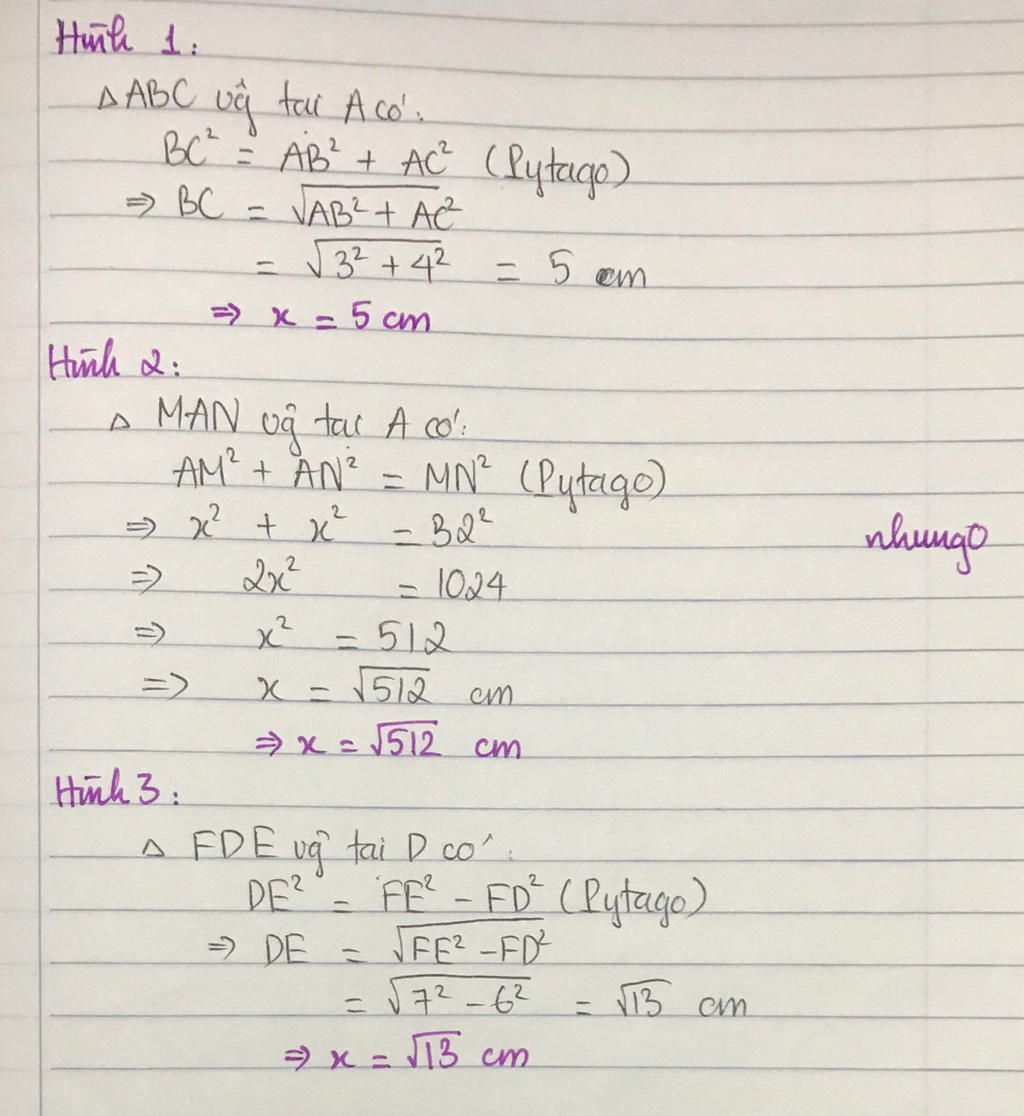 Hình 1:
△ABC vĝ tại A có:
BC² = AB² + AC² (Pytago)
⇒ BC = √AB² + AC²
= √3² + 4² = 5 cm
⇒ x = 5 cm
Hình 2:
△ MAN vĝ tại A có:
AM² + AN² = MN² (Pytago)
⇒ x² + x² = 32²
nhung0
⇒ 2x² = 1024
⇒ x² = 512
=> x = √512 cm
⇒ x = √512 cm
Hình 3:
△ FDE vĝ tại D có:
DE² = FE² - FD² (Pytago)
⇒ DE = √FE² - FD²
= √7² - 6² = √13 cm
⇒ x = √13 cm